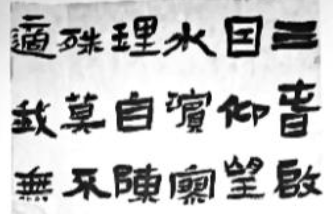 三春啟
因仰望
水濱寥
理自陳
殊莫不
適我無